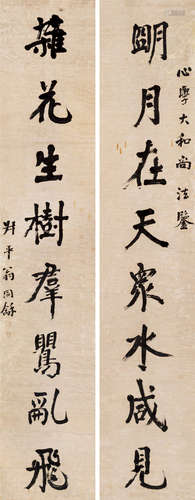 心學大和尚法鑒
明月在天眾水咸見
雜花生樹羣鶯亂飛
叔平翁同龢